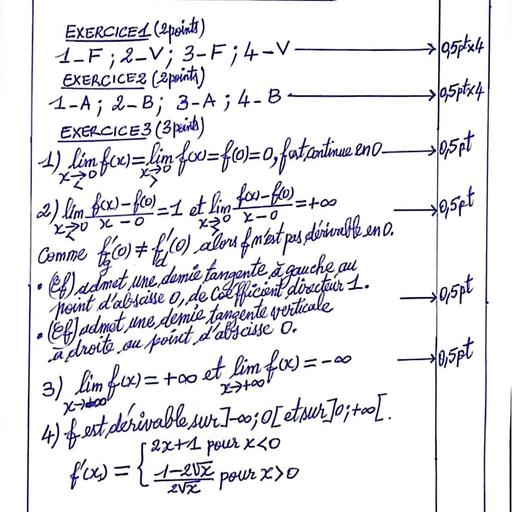 EXERCICE 1 (2points)
1-F ; 2-V ; 3-F ; 4-V → 0,5pt×4
EXERCICE 2 (2points)
1-A ; 2-B ; 3-A ; 4-B → 0,5pt×4
EXERCICE 3 (3points)
1) lim x→0 < f(x) = lim x→0 > f(x) = f(0) = 0, f est continue en 0 → 0,5pt
2) lim x→0 < (f(x)-f(0))/(x-0) = 1 et lim x→0 > (f(x)-f(0))/(x-0) = +∞ → 0,5pt
Comme f'g(0) ≠ f'd(0) alors f n'est pas dérivable en 0.
• (Cf) admet une demie tangente à gauche au
point d'abscisse 0, de coefficient directeur 1. → 0,5pt
• (Cf) admet une demie tangente verticale
à droite au point d'abscisse 0.
3) lim x→-∞ f(x) = +∞ et lim x→+∞ f(x) = -∞ → 0,5pt
4) f est dérivable sur ]-∞;0[ et sur ]0;+∞[.
f'(x) = { 2x+1 pour x<0
(1-2√x)/(2√x) pour x>0